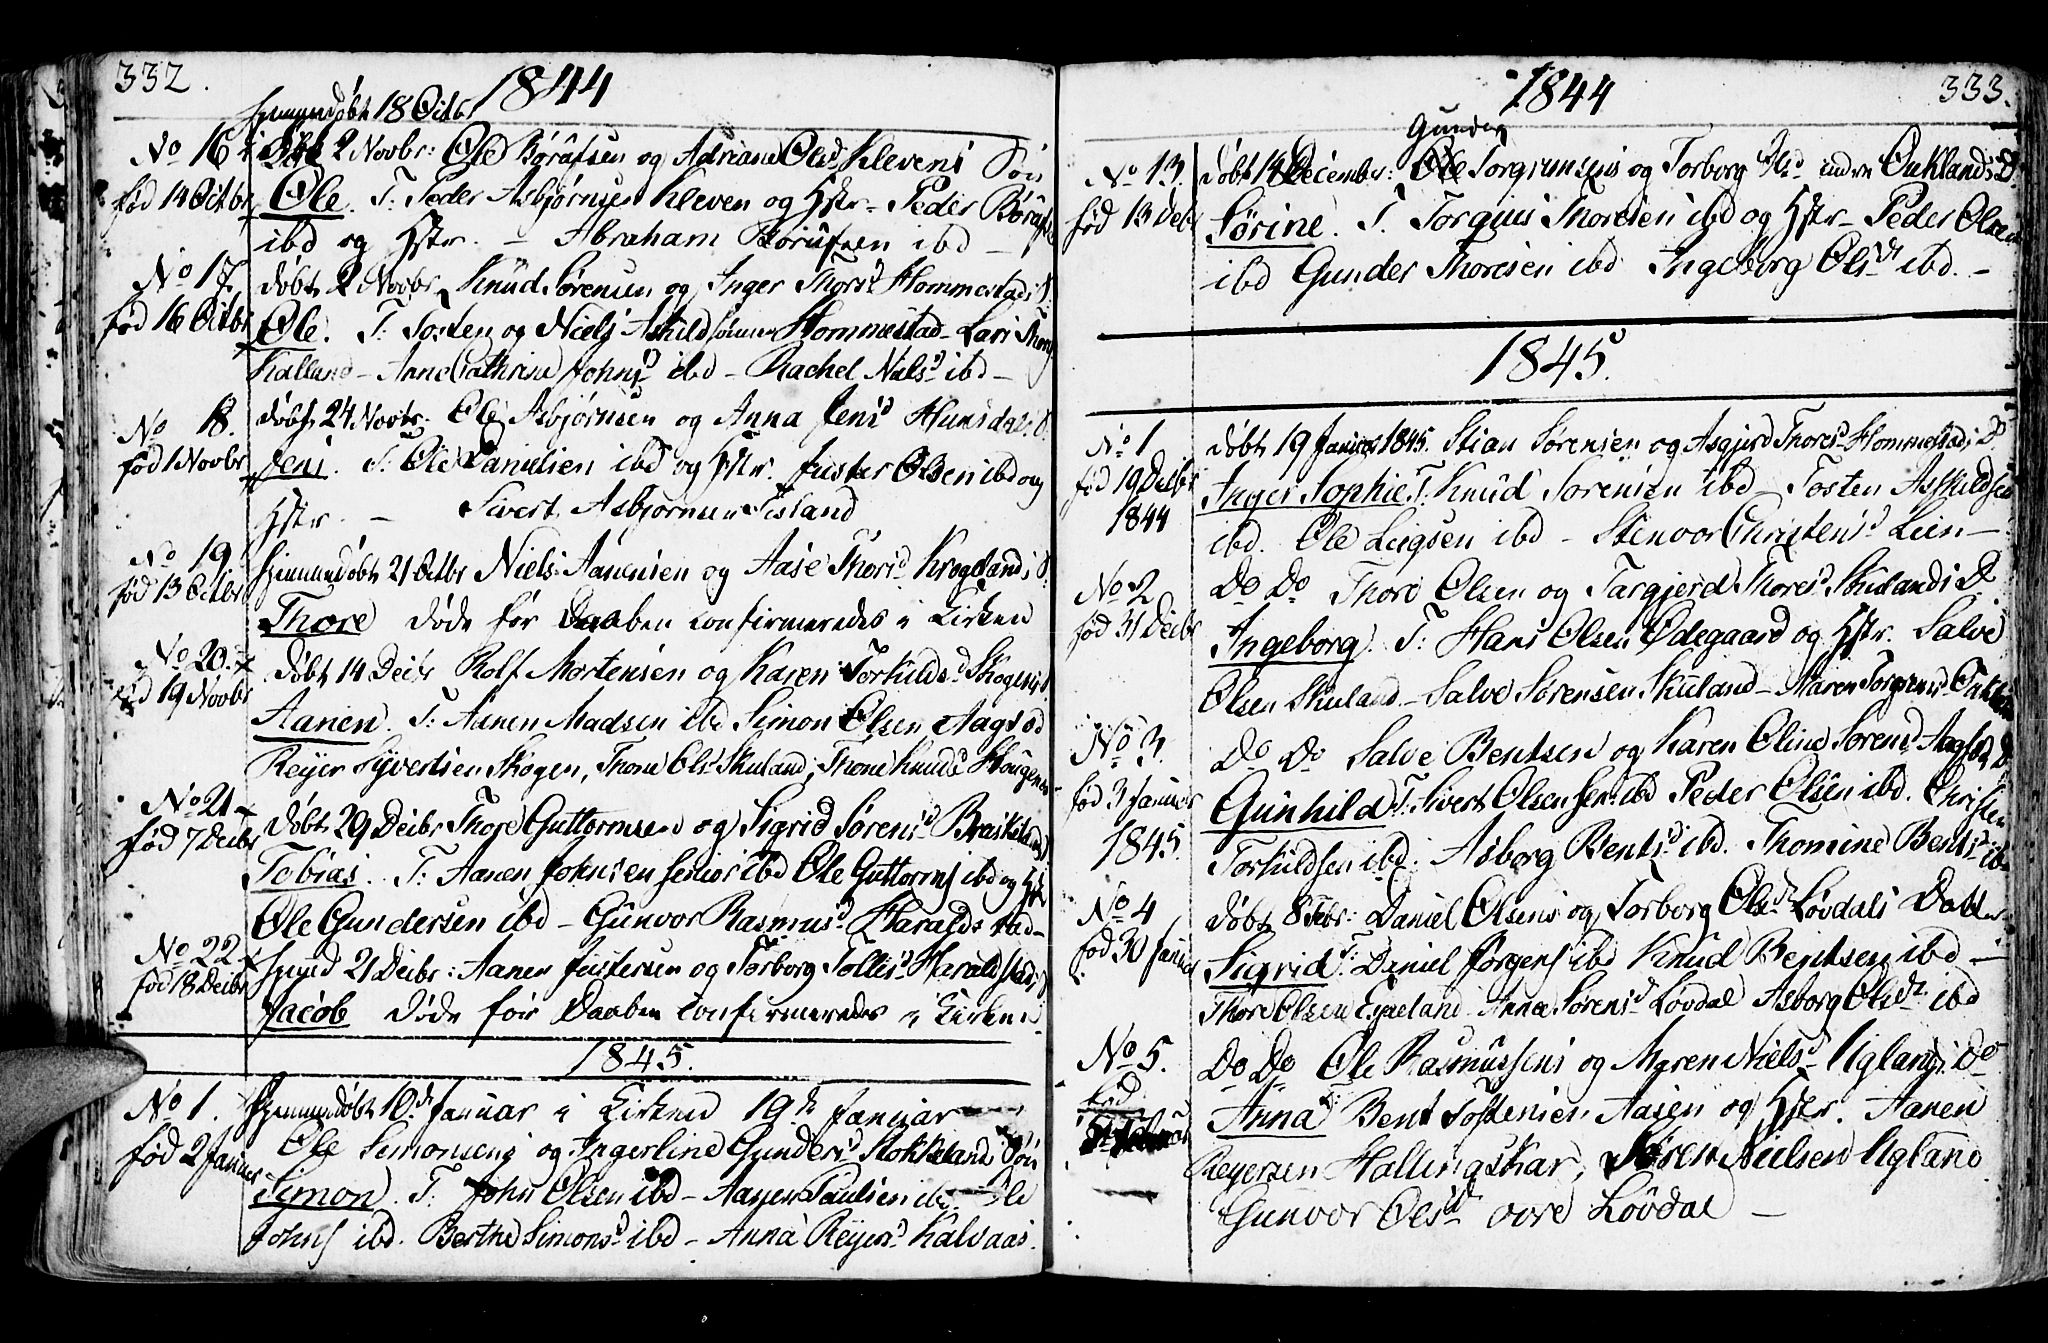 332.
1844
Hjemmedøbt 18 Octbr
No 16
fød 14 Octbr
2 Novbr: Ole Børufsen og Adriane Olsd Klevens Søn
Ole. T. Peder Asbjørnsen Kleven og Hstr - Peder Børufs
ibd og Hstr. - Abraham Børufsen ibd -
No 17.
fød 16 Octbr
døbt 2 Novbr Knud Sørensen og Inger Thorsd Hommestads S.
Ole. T: Tosten og Niels Askildsønner Hommestad - Lars Thors
Kalland - Anne Cathrine Johnsd ibd - Rachel Nielsd ibd -
No 18.
fød 1 Novbr
døbt 24 Novbr. Ole Asbjørnsen og Anna Jensd Hunsdals S.
Jens. T: Ole Danielsen ibd og Hstr. Juster Olsen ibd og
Hstr. - Sivert Asbjørnsen Fisland
No 19
fød 13 Octbr
Hjemmedøbt 21 Octbr Niels Aanensen og Aase Thorsd Krogelands S.
Thore døde før Daaben confirmeredes i Kirken
No 20.
fød 19 Novbr
døbt 14 Decbr Rolf Mortensen og Karen Torkildsd Skogens S
Aanen. T: Aanen Madsen ibd Simon Olsen Aagsød
Reyer Syvertsen Skogen, Thone Olsd Skuland, Thone Knudsd Hougen
No 21
fød 7 Decbr
døbt 29 Decbr Thore Guttormsen og Sigrid Sørensd
Tobias. T: Aanen Johnsen senior ibd Ole Guttorms ibd og Hstr
Ole Gundersen ibd - Gunvor Rasmusd Haraldstad -
No 22
fød 18 Decbr
Hjmd 21 Decbr: Aanen Justersen og Torborg Tollisd Haraldstads S
Jacob døde før Daaben confirmeredes i Kirken
1845.
No 1.
fød 2 Januar
Hjemmedøbt 10de Januar i Kirken 19de Januar
Ole Simonsens og Ingerline Gundersd Stokkelands Søn
Simon. T. John Olsen ibd - Aanen Paulsen ibd - Ole
Johns ibd. Berthe Simonsd ibd - Anna Reyersd Kalsaas.
1844
333.
Gunder
No 13.
fød 13 Decbr
døbt 14 December: Torgrimsens og Torborg Olsd indre Ouklands D.
Sørine. T. Torgius Thoresen ibd og Hstr - Peder Olsen
ibd Gunder Thoresen ibd Ingeborg Olsdt ibd. -
1845.
No 1
fød 19 Decbr
1844
døbt 19 Januar 1845. Stian Sørensen og Asgjerd Thoresd Hommestads D.
Inger Sophie T. Knud Sørensen ibd Tosten Askildsen
ibd. Ole Leigsen ibd - Stenvor Christensd Lien -
No 2
fød 31 Decbr
Do Do Thore Olsen og Targjerd Thoresd Skulands D
Ingeborg. T: Hans Olsen Ødegaard og Hstr. Salve
Olsen Skuland - Salve Sørensen Skuland - Maren Torgrimsd
No 3.
fød 3 Januar
1845.
Do Do Salve Bentsen og Karen Oline Sørensd Aagsød D
Gunhild T: Sivert Olsen sen: ibd Peder Olsen ibd. Christen
Torkildsen ibd. Asborg Bentsd ibd. Thomine Bentsd ibd
No 4
fød 30 Januar
døbt 8 Febr: Daniel Olsens og Torborg Olsd Løvdals Datter
Sigrid T: Daniel Jørgens ibd Knud Bentsen ibd -
Thore Olsen Egeland Anna Sørensd Løvdal Asborg Olsdt ibd
No 5.
fød
Do Do Ole Rasmussens og Maren Nielsd Uglands Do
Anna T: Bent Tostensen Aasen og Hstr. Aanen
Reyersen Hallingskar, Søren Nielsen Ugland
Gunvor Olsd øvre Løvdal -